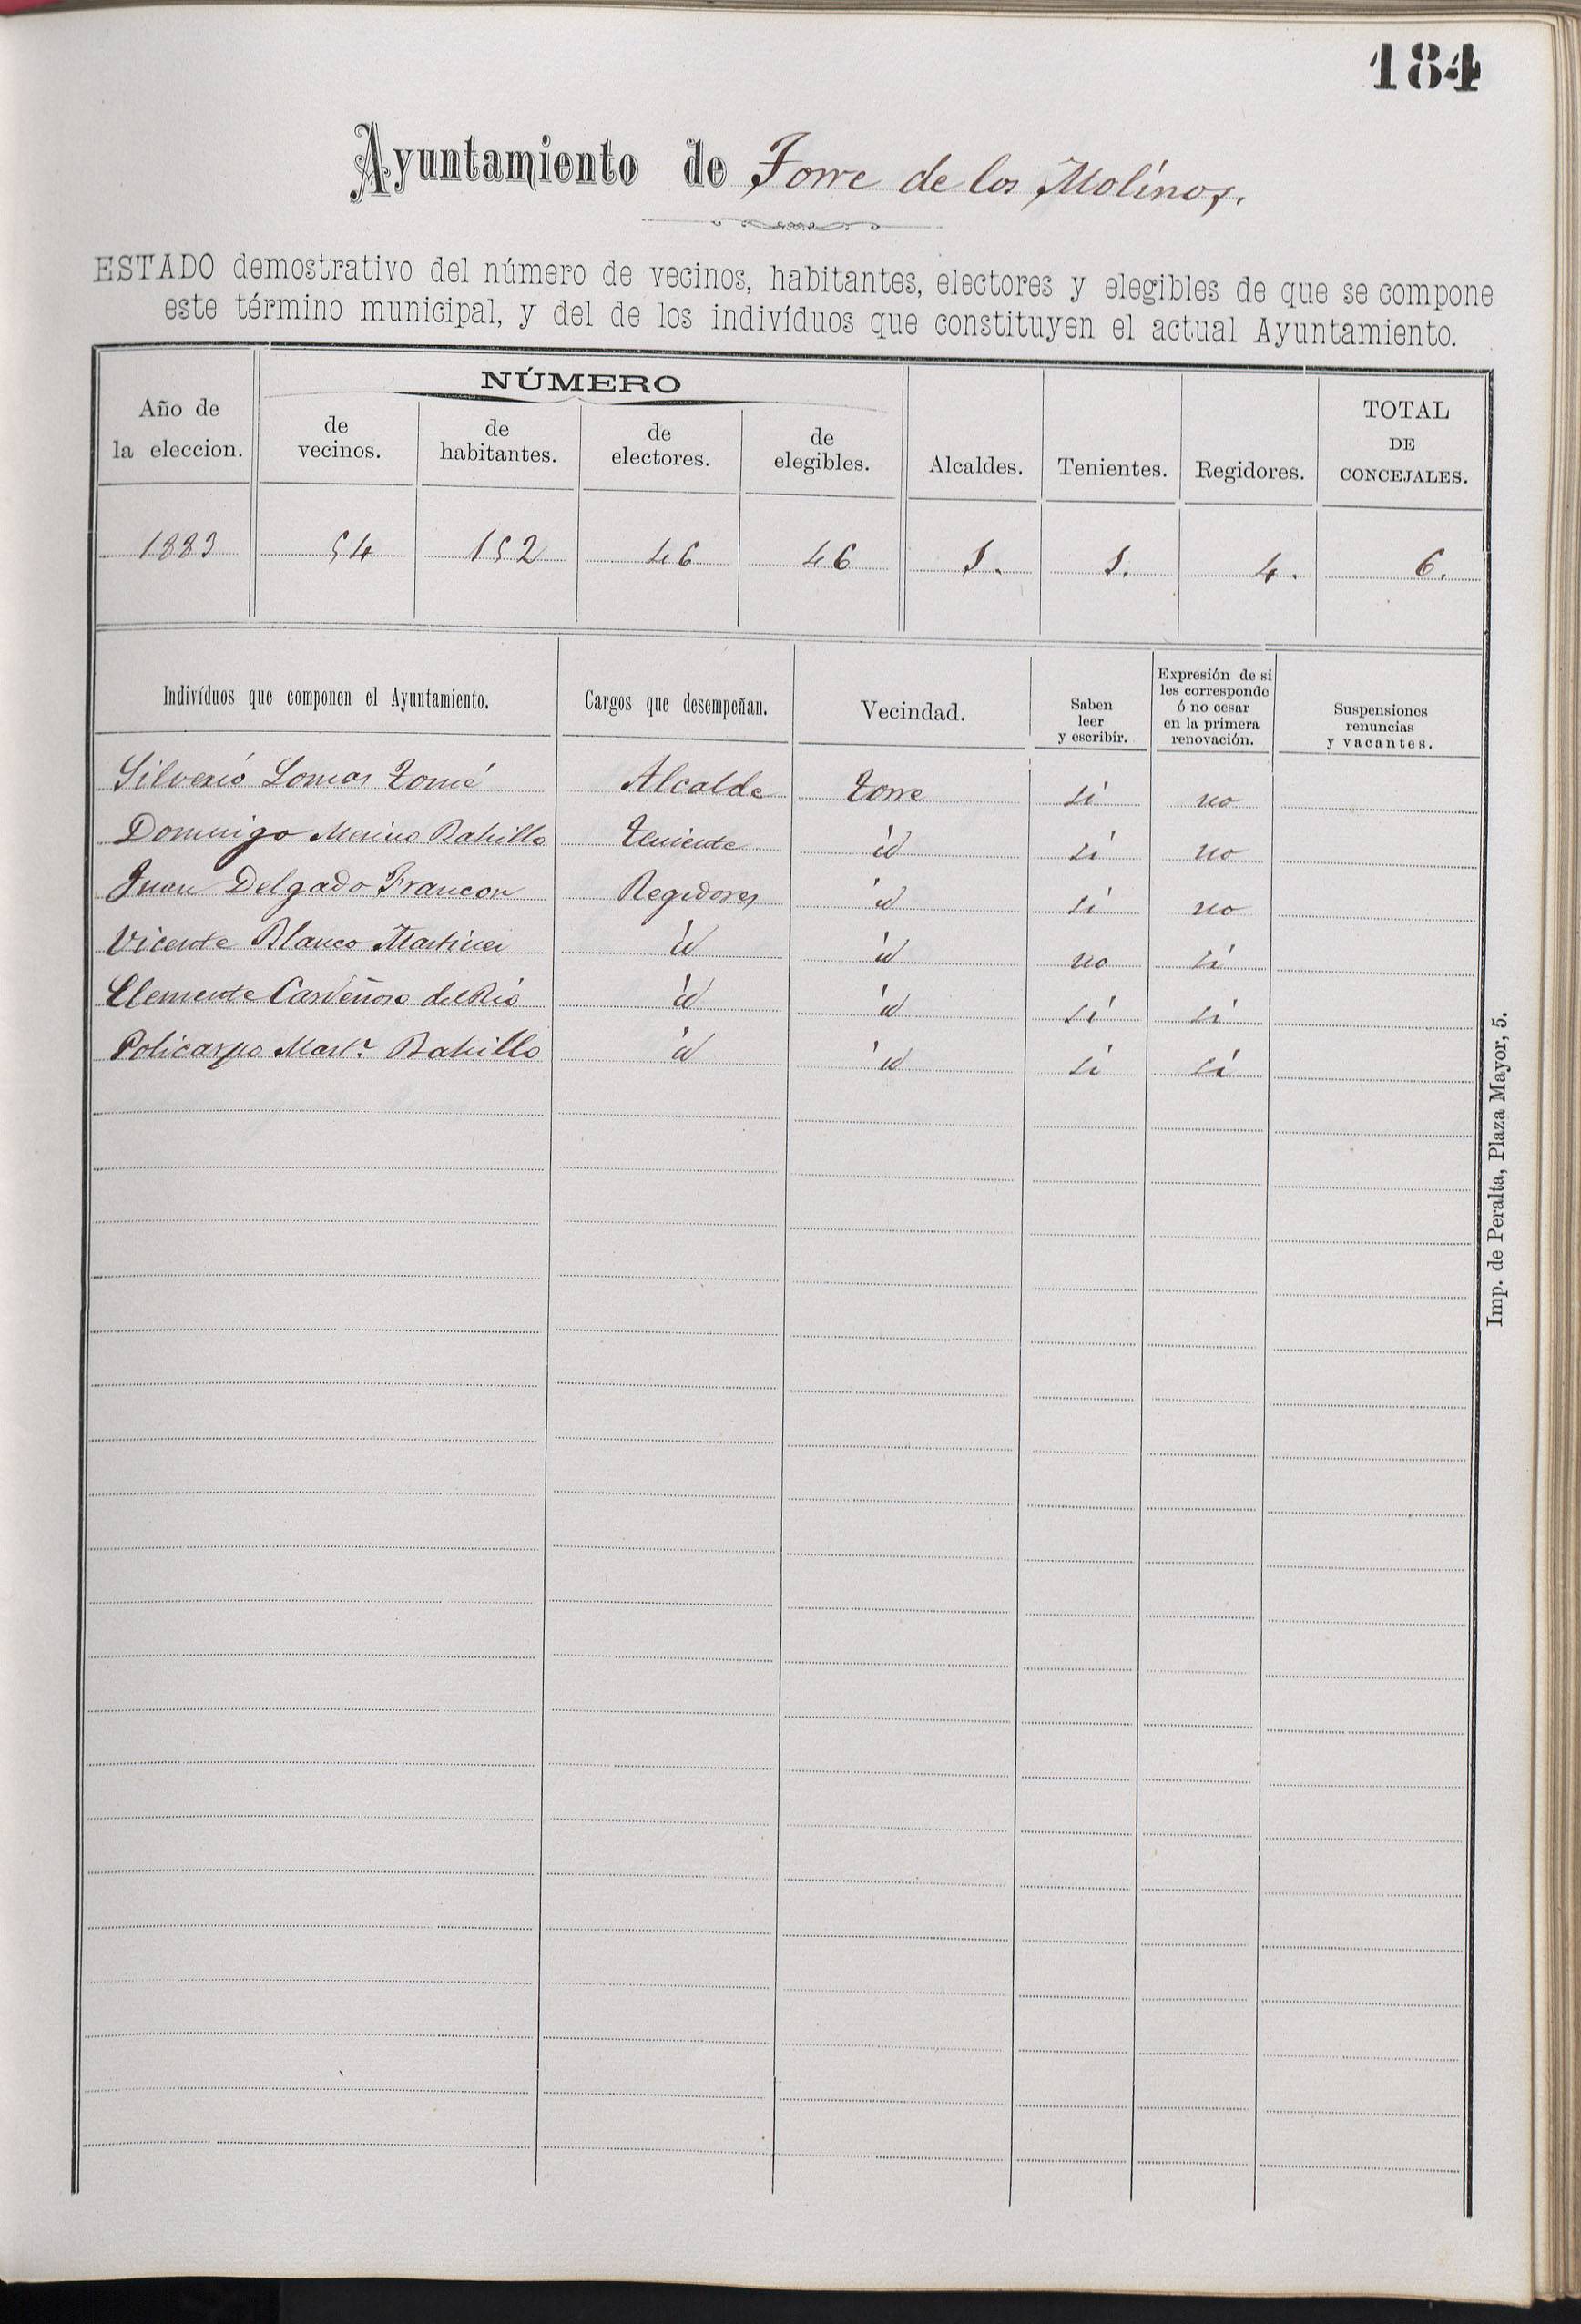 184
Ayuntamiento de Torre de los Molinos.
ESTADO demostrativo del número de vecinos, habitantes, electores y elegibles de que se compone
este término municipal, y del de los indivíduos que constituyen el actual Ayuntamiento.
NÚMERO
Año de la eleccion. de vecinos. de habitantes. de electores. de elegibles. Alcaldes. Tenientes. Regidores. TOTAL DE CONCEJALES.
1883 54 152 46 46 1. 1. 4. 6.
Indivíduos que componen el Ayuntamiento. Cargos que desempeñan. Vecindad. Saben leer y escribir. Expresión de si les corresponde ó no cesar en la primera renovación. Suspensiones renuncias y vacantes.
Silverio Lomas Tomé Alcalde Torre si no
Domingo Merino Bahillo Teniente id si no
Juan Delgado Francon Regidores id si no
Vicente Blanco Martinez id id no si
Clemente Cardeñoso del Rio id id si si
Policarpo Mart.ᶻ Bahillo id id si si
Imp. de Peralta, Plaza Mayor, 5.